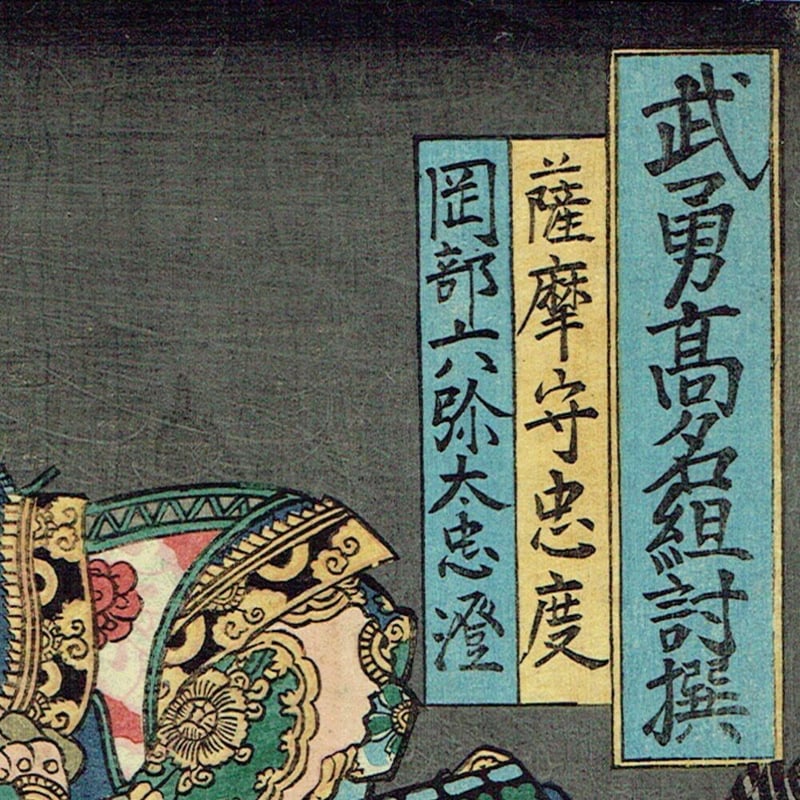 武勇高名組討撰
薩摩守忠度
岡部六弥太忠澄